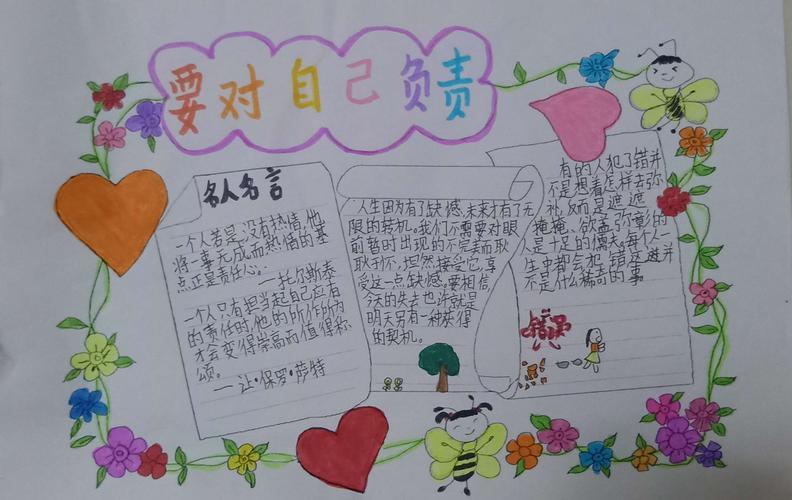 要对自己负责
名人名言
一个人若是没有热情,他
将一事无成而热情的基
点正是责任心。
—托尔斯泰
一个人只有担当起自己应有
的责任时,他的所作所为
才会变得崇高而值得称
颂。
—让·保罗·萨特
人生因为有了缺憾,未来才有了无
限的转机。我们不需要对眼
前暂时出现的不完美而耿
耿于怀,坦然接受它,享
受这一点缺憾。要相信,
今天的失去也许就是
明天另有一种获得
的契机。
有的人犯了错并
不是想着怎样去弥
补,反而是遮遮
掩掩、欲盖弥彰的
人是十足的懦夫。每个人一
生中都会犯错,这并
不是什么稀奇的事
错误